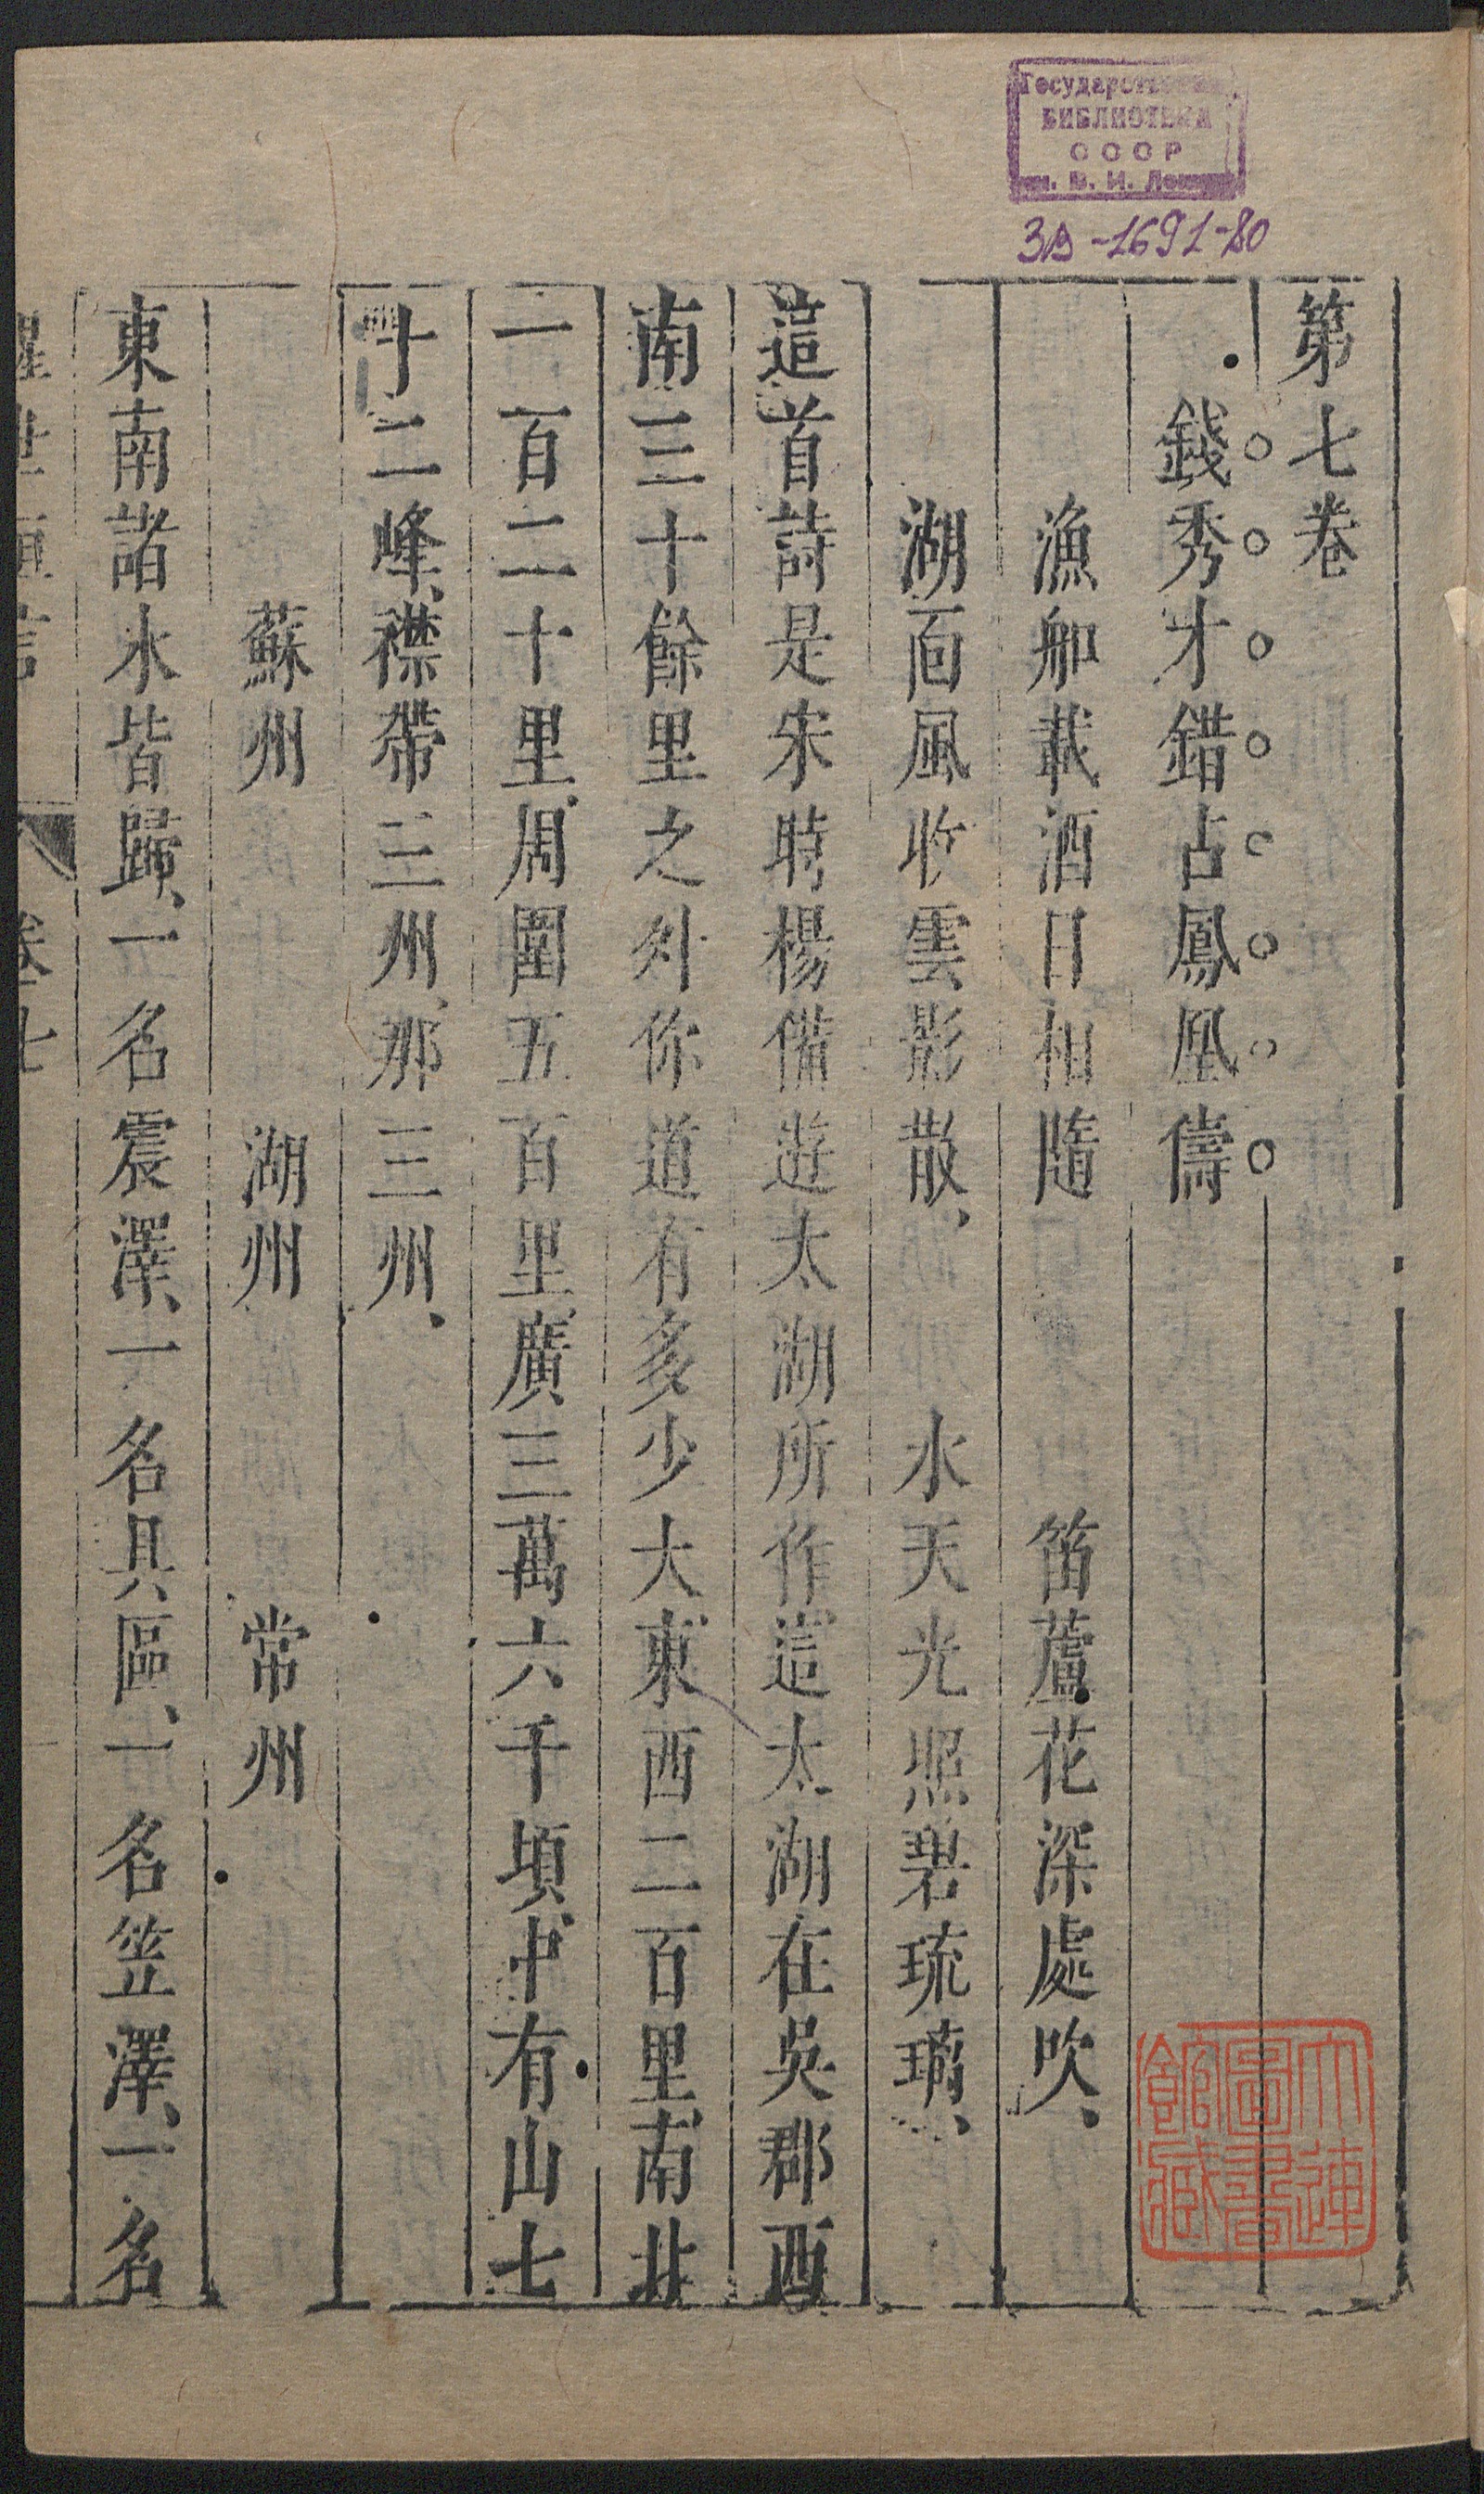 БИБЛИОТЕКА
СССР
3В-1691-80
第七卷
錢秀才錯占鳳凰儔
漁船載酒日相隨　笛蘆花深處吹、
湖面風收雲影散、　水天光照碧琉璃、
這首詩是宋時楊備遊太湖所作這太湖在吳郡西
南三十餘里之外你道有多少大東西二百里南北
一百二十里周圍五百里廣三萬六千頃中有山七
十二峰、襟帶三州、那三州、
蘇州　湖州　常州
東南諸水皆歸、一名震澤、一名具區、一名笠澤、一名
醒世恒言　卷七
大連圖書館藏